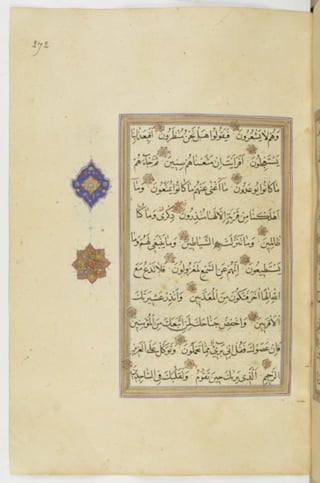 272
وهم لا يشعرون فيقولوا هل نحن منظرون افبعذابنا
يستعجلون افرايت ان متعناهم سنين ثم جاءهم
ما كانوا يوعدون ما اغنى عنهم ما كانوا يمتعون وما
اهلكنا من قرية الا لها منذرون ذكرى وما كنا
ظالمين وما تنزلت به الشياطين وما ينبغي لهم وما
يستطيعون انهم عن السمع لمعزولون فلا تدع مع
الله الها اخر فتكون من المعذبين وانذر عشيرتك
الاقربين واخفض جناحك لمن اتبعك من المؤمنين
فان عصوك فقل اني بريء مما تعملون وتوكل على العزيز
الرحيم الذي يريك حين تقوم وتقلبك في الساجدين